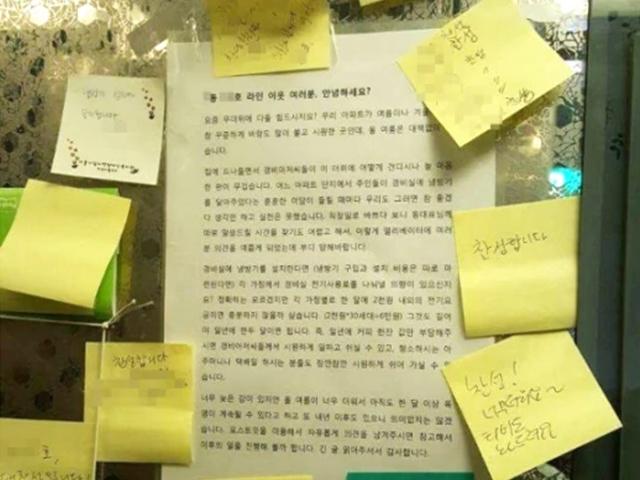 동 호 라인 이웃 여러분, 안녕하세요?
요즘 무더위에 다들 힘드시지요? 우리 아파트가 여름이나 겨울
참 꾸준하게 바람도 많이 불고 시원한 곳인데, 올 여름은 대책없이
습니다.
집에 드나들면서 경비아저씨들이 이 더위에 어떻게 견디시나 늘 마음
한 편이 무겁습니다. 어느 아파트 단지에서 주민들이 경비실에 냉방기
를 달아주었다는 훈훈한 이야기 들릴 때마다 우리도 그러면 참 좋겠
다 생각만 하고 실천은 못했습니다. 직장일로 바쁘다 보니 동대표님께
따로 말씀드릴 시간을 찾기도 어렵고 해서, 이렇게 엘리베이터에 여러
분 의견을 여쭙게 되었는데 부디 양해바랍니다.
경비실에 냉방기를 설치한다면 (냉방기 구입과 설치 비용은 따로 마
련된다면) 각 가정에서 경비실 전기사용료를 나눠낼 의향이 있으신지
요? 정확하는 모르겠지만 각 가정별로 한 달에 2천원 내외의 전기요
금이면 충분하지 않을까 싶습니다. (2천원*30세대=6만원) 그것도 길어
야 일년에 한두 달이면 됩니다. 즉, 일년에 커피 한잔 값만 부담해주
시면 경비아저씨들께서 시원하게 일하고 쉬실 수 있고, 청소하시는 아
주머니나 택배일 하시는 분들도 잠깐잠깐 시원하게 쉬어 가실 수 있
습니다.
너무 늦은 감이 있지만 올 여름이 너무 더워서 아직도 한 달 이상 폭
염이 계속될 수 있다고 하고 또 내년 이후도 있으니 의미없지는 않겠
습니다. 포스트잇을 이용해서 자유롭게 의견을 남겨주시면 참고해서
이후의 일을 진행해 볼까 합니다. 긴 글 읽어주셔서 감사합니다.
찬성
찬성합니다
찬성합니다
찬성!